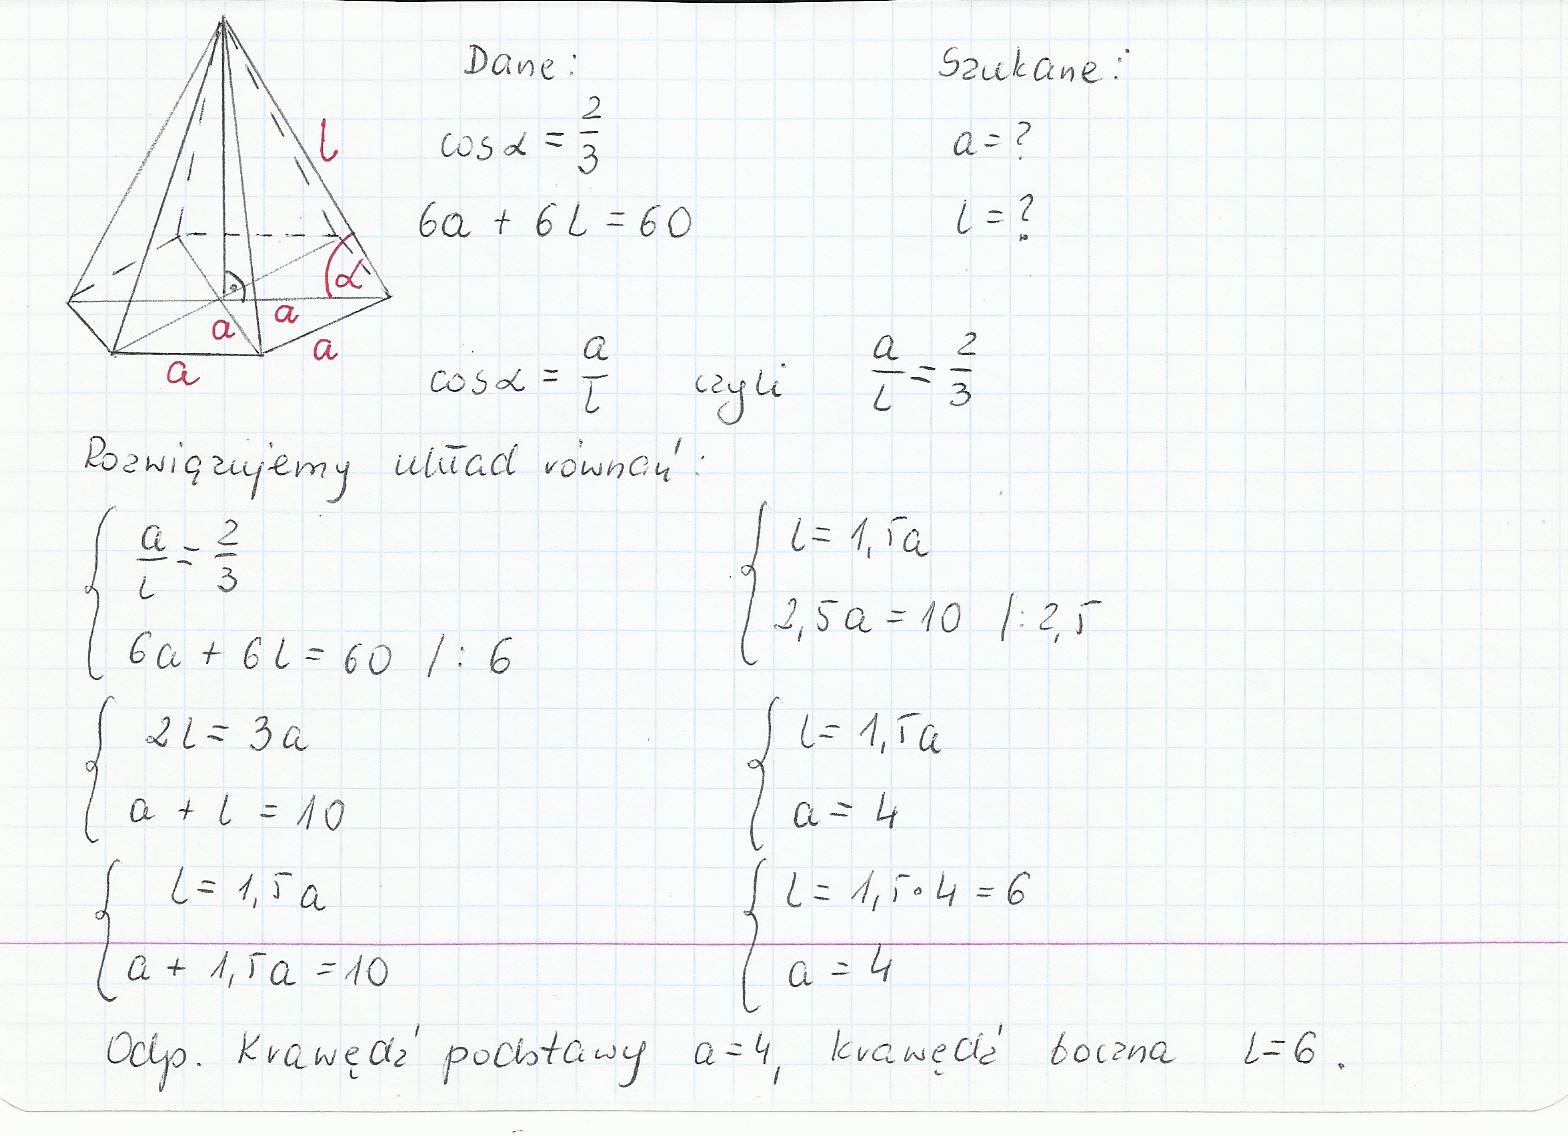 Dane:
Szukane:
cos α = 2/3
a = ?
6a + 6l = 60
l = ?
l
α
a
a
a
a
cos α = a/l czyli a/l = 2/3
Rozwiązujemy układ równań:
a/l = 2/3
6a + 6l = 60 /: 6
2l = 3a
a + l = 10
l = 1,5a
a + 1,5a = 10
l = 1,5a
2,5a = 10 /: 2,5
l = 1,5a
a = 4
l = 1,5 · 4 = 6
a = 4
Odp. Krawędź podstawy a = 4, krawędź boczna l = 6.